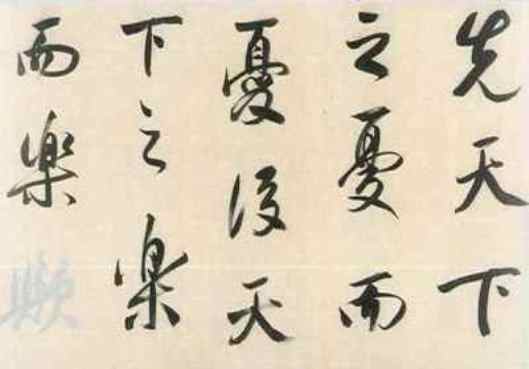 先天下
之憂而
憂後天
下之楽
而楽